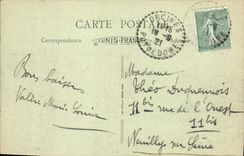 CARTE POSTALE
Correspondance
ORCINES
18-8
21
PUY-DE-DOME
Bons baisers
Valère Marie Louise
Madame
Théo Duquennois
11bis rue de l'Ouest
11bis
Neuilly sur Seine